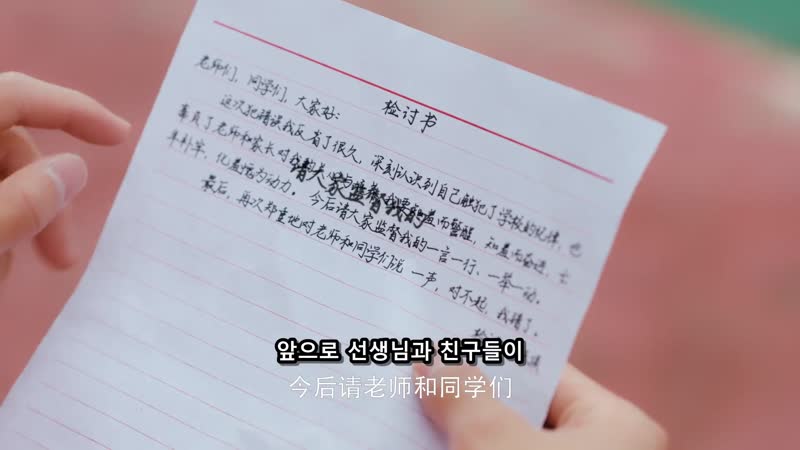 检讨书
老师们，同学们，大家好：
这次犯错误我反省了很久，深刻认识到自己触犯了学校的纪律，也
辜负了老师和家长对我的
而警醒，知羞而奋进，亡
羊补牢，化羞愧为动力。今后请大家监督我的一言一行、一举一动。
最后，再次郑重地对老师和同学们说一声，对不起，我错了。
请大家监督我的
앞으로 선생님과 친구들이
今后请老师和同学们